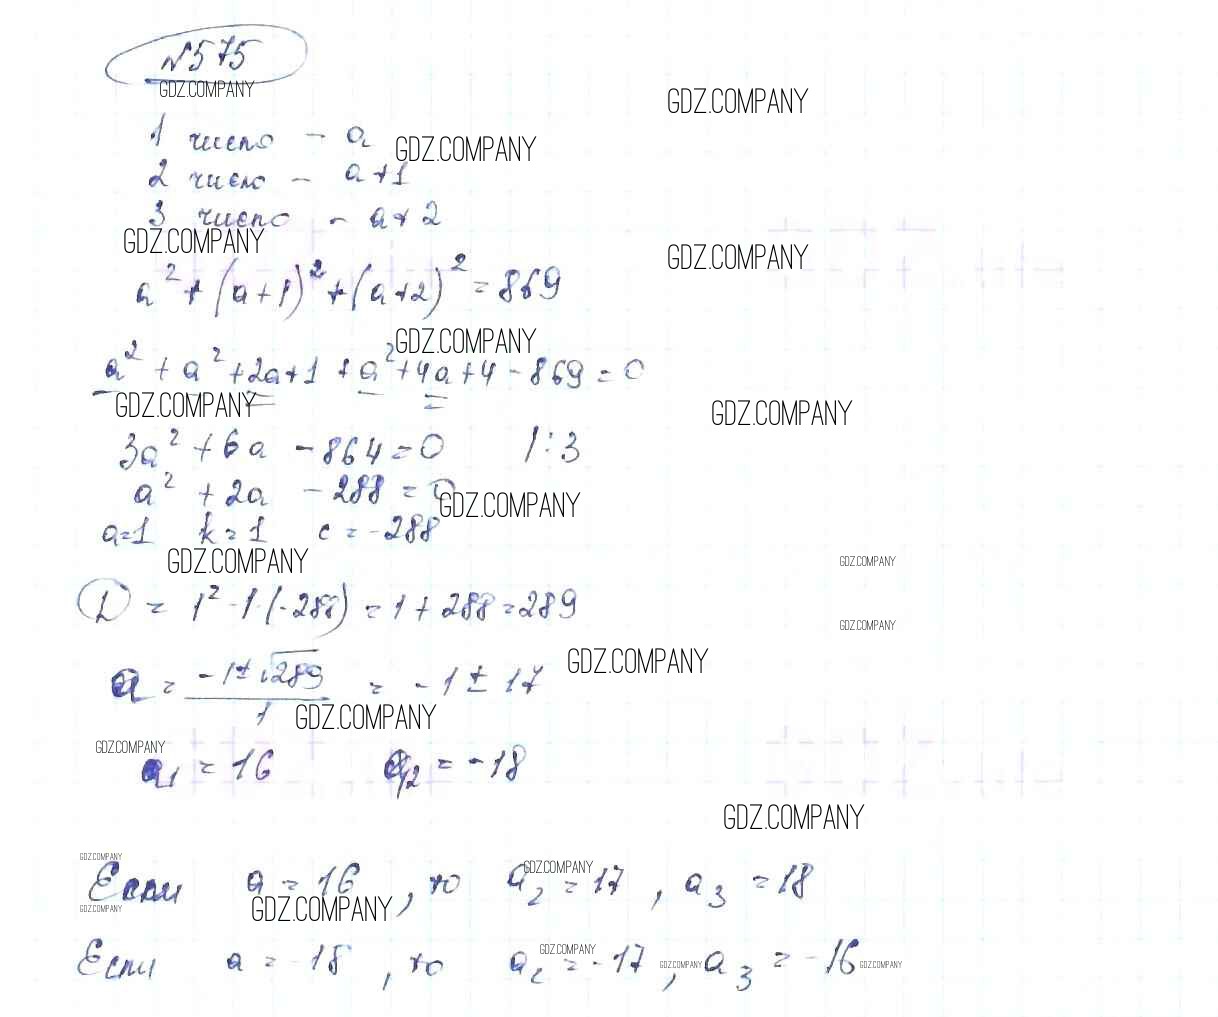 №575
GDZ.COMPANY
GDZ.COMPANY
1 число – a
GDZ.COMPANY
2 число – a+1
3 число – a+2
GDZ.COMPANY
GDZ.COMPANY
a² + (a+1)² + (a+2)² = 869
GDZ.COMPANY
a² + a² + 2a+1 + a² + 4a + 4 - 869 = 0
GDZ.COMPANY
GDZ.COMPANY
3a² + 6a - 864 = 0 /:3
a² + 2a - 288 = 0
GDZ.COMPANY
a=1 k=1 c=-288
GDZ.COMPANY
GDZ.COMPANY
D = 1² - 1·(-288) = 1 + 288 = 289
GDZ.COMPANY
a = (-1±√289)/1 = -1 ± 17
GDZ.COMPANY
GDZ.COMPANY
GDZ.COMPANY
a₁ = 16 a₂ = -18
GDZ.COMPANY
GDZ.COMPANY
GDZ.COMPANY
Если a = 16, то a₂ = 17, a₃ = 18
GDZ.COMPANY
GDZ.COMPANY
GDZ.COMPANY
Если a = -18, то a₂ = -17, a₃ = -16
GDZ.COMPANY
GDZ.COMPANY